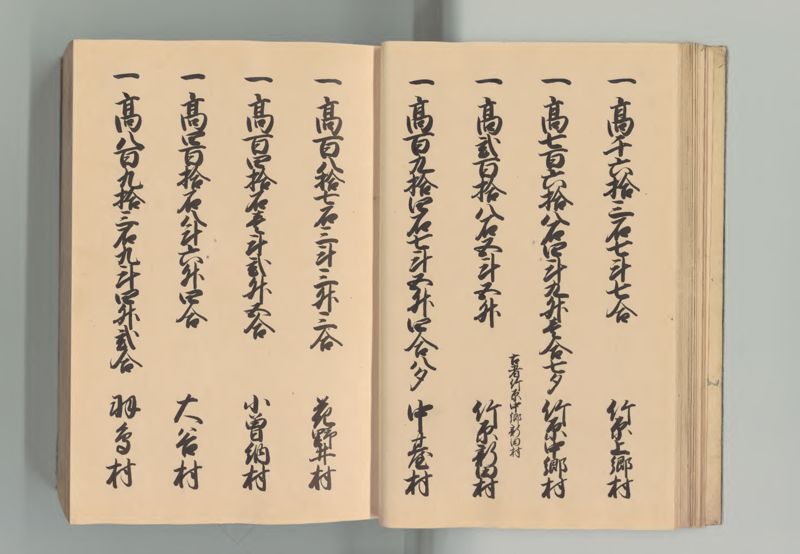 一高千六拾三石七斗七合 竹原上郷村
一高七百六拾八石四斗九升壱合七夕 竹原中郷村
古者竹原中郷新田村
一高弐百拾八石五斗五升 竹原新田村
一高百九拾四石七斗五升四合八夕 中臺村
一高百八拾七石三斗三升三合 花野井村
一高百四拾石壱斗弐升五合 小曽納村
一高四百拾石八斗六升四合 大谷村
一高八百九拾三石九斗四升弐合 羽鳥村